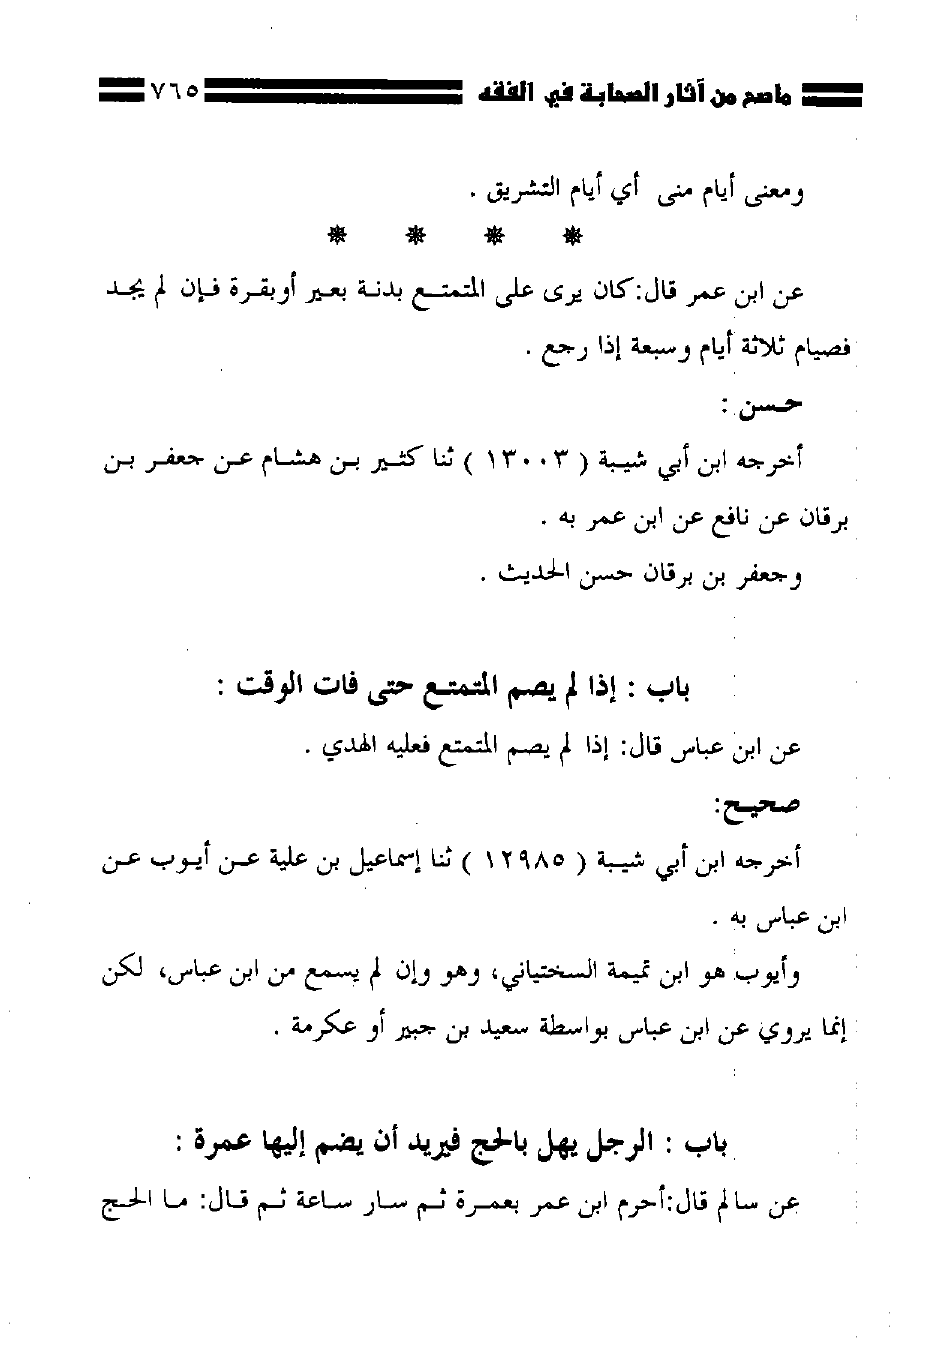 ماصح من آثار الصحابة في الفقه ٧٦٥
ومعنى أيام منى أي أيام التشريق .
عن ابن عمر قال:كان يرى على المتمتع بدنة بعير أوبقرة فإن لم يجد
فصيام ثلاثة أيام وسبعة إذا رجع .
حسن :
أخرجه ابن أبي شيبة ( ١٣٠٠٣ ) ثنا كثير بن هشام عن جعفر بن
برقان عن نافع عن ابن عمر به .
وجعفر بن برقان حسن الحديث .
باب : إذا لم يصم المتمتع حتى فات الوقت :
عن ابن عباس قال: إذا لم يصم المتمتع فعليه الهدي .
صحيح:
أخرجه ابن أبي شيبة ( ١٢٩٨٥ ) ثنا إسماعيل بن علية عن أيوب عن
ابن عباس به .
وأيوب هو ابن تميمة السختياني، وهو وإن لم يسمع من ابن عباس، لكن
إنما يروي عن ابن عباس بواسطة سعيد بن جبير أو عكرمة .
باب : الرجل يهل بالحج فيريد أن يضم إليها عمرة :
عن سالم قال:أحرم ابن عمر بعمرة ثم سار ساعة ثم قال: ما الحج